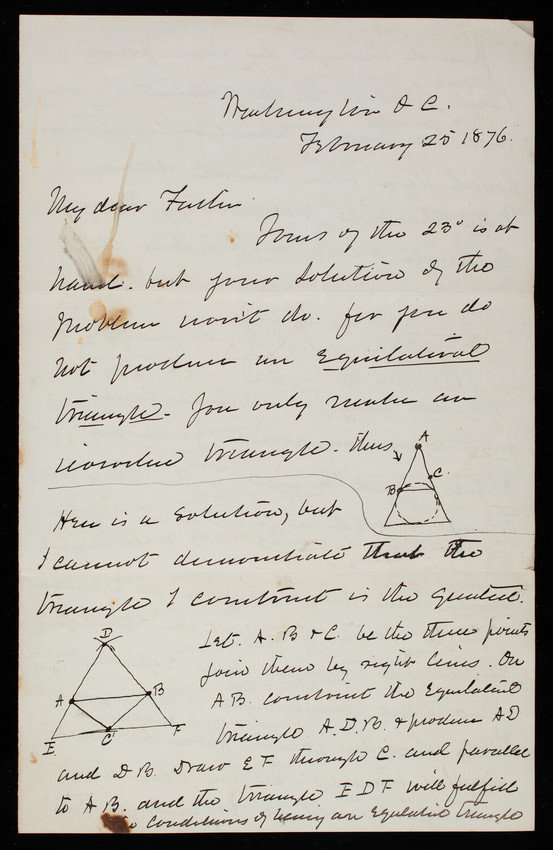 Washington D C.
February 25 1876.
My dear Father
Yours of the 23d is at
hand. but your solution of the
problem won't do. for you do
not produce an Equilateral
triangle. You only make an
isosceles triangle. thus
A
C.
B
Here is a solution, but
I cannot demonstrate that the
triangle I construct is the greatest.
D
A
B
E
C
F
Let. A. B & C. be the three points
join them by right lines. On
A B. construct the Equilateral
triangle A. D. B. & produce AD
and D B. Draw E F through C. and parallel
to A B. and the triangle E D F will fulfill
conditions of being an Equilateral triangle